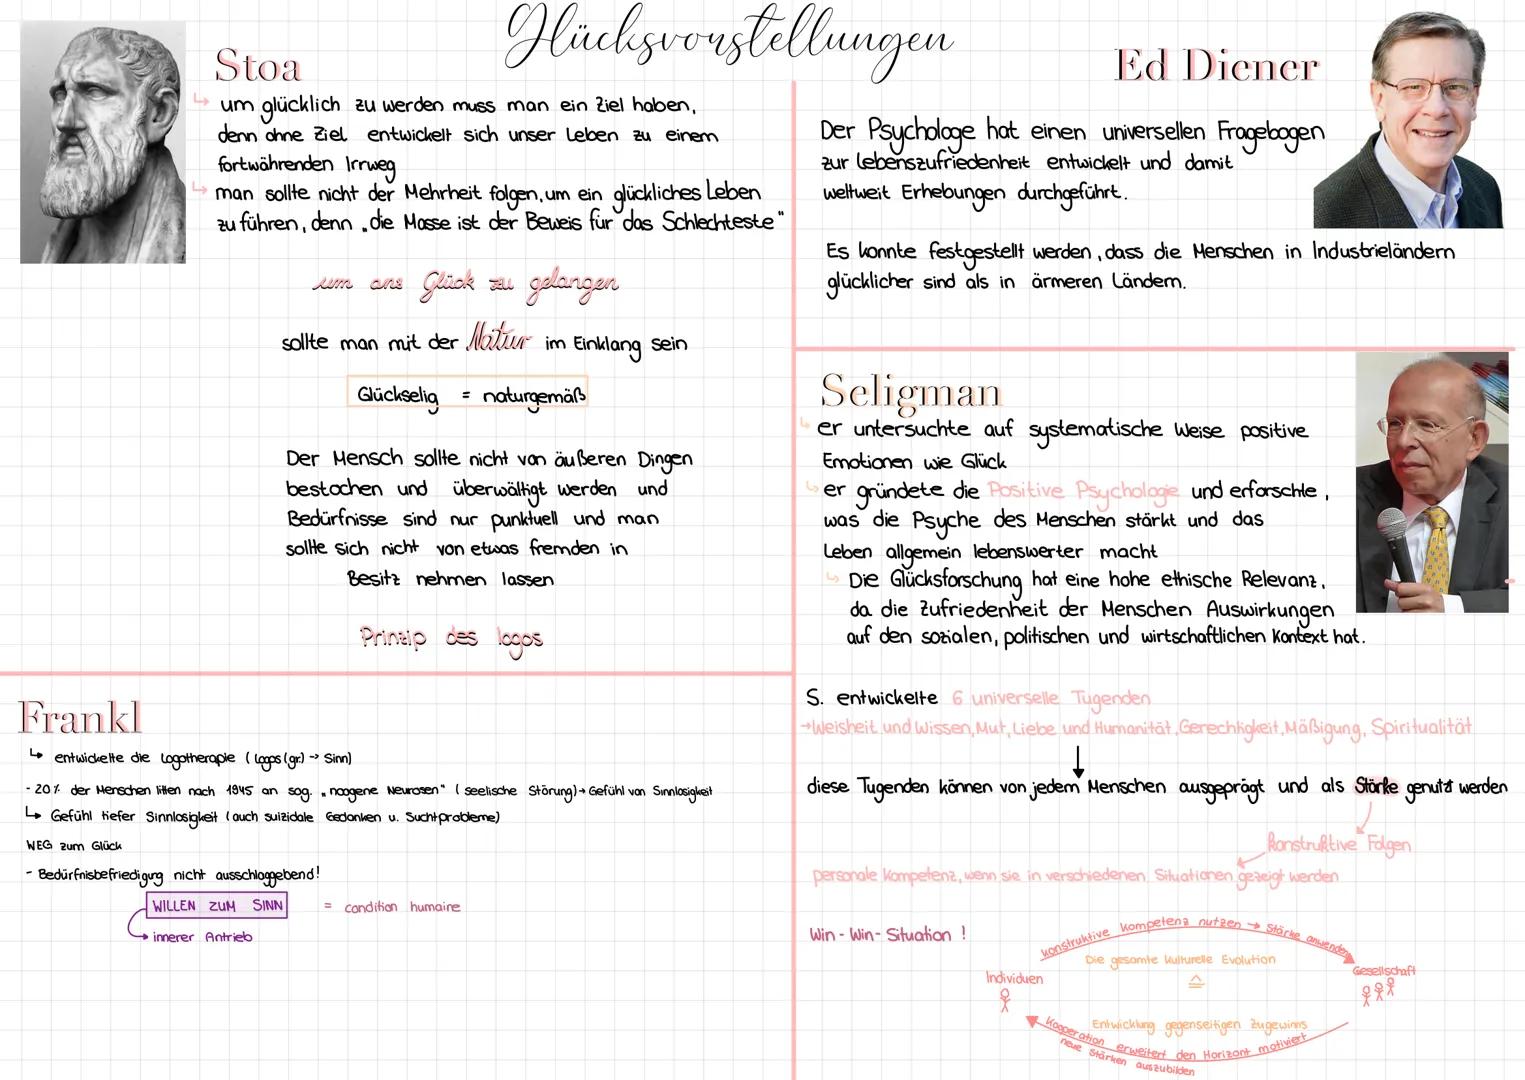 Glücksvorstellungen
Stoa
↳ um glücklich zu werden muss man ein Ziel haben,
denn ohne Ziel entwickelt sich unser Leben zu einem
fortwährenden Irrweg
↳ man sollte nicht der Mehrheit folgen, um ein glückliches Leben
zu führen, denn „die Masse ist der Beweis für das Schlechteste"
um ans Glück zu gelangen
sollte man mit der Natur im Einklang sein
Glückselig = naturgemäß
Der Mensch sollte nicht von äußeren Dingen
bestochen und überwältigt werden und
Bedürfnisse sind nur punktuell und man
sollte sich nicht von etwas fremden in
Besitz nehmen lassen
Prinzip des logos
Frankl
↳ entwickelte die Logotherapie (Logos (gr.) → Sinn)
- 20% der Menschen litten nach 1945 an sog. „noogene Neurosen" (seelische Störung) → Gefühl von Sinnlosigkeit
↳ Gefühl tiefer Sinnlosigkeit (auch suizidale Gedanken u. Suchtprobleme)
WEG zum Glück
- Bedürfnisbefriedigung nicht ausschlaggebend!
WILLEN ZUM SINN = condition humaine
→ innerer Antrieb
Ed Diener
Der Psychologe hat einen universellen Fragebogen
zur Lebenszufriedenheit entwickelt und damit
weltweit Erhebungen durchgeführt.
Es konnte festgestellt werden, dass die Menschen in Industrieländern
glücklicher sind als in ärmeren Ländern.
Seligman
↳ er untersuchte auf systematische Weise positive
Emotionen wie Glück
↳ er gründete die Positive Psychologie und erforschte,
was die Psyche des Menschen stärkt und das
Leben allgemein lebenswerter macht
↳ Die Glücksforschung hat eine hohe ethische Relevanz,
da die Zufriedenheit der Menschen Auswirkungen
auf den sozialen, politischen und wirtschaftlichen Kontext hat.
S. entwickelte 6 universelle Tugenden
→ Weisheit und Wissen, Mut, Liebe und Humanität, Gerechtigkeit, Mäßigung, Spiritualität
diese Tugenden können von jedem Menschen ausgeprägt und als Stärke genutzt werden
konstruktive Folgen
personale Kompetenz, wenn sie in verschiedenen Situationen gezeigt werden
Win-Win-Situation!
konstruktive Kompetenz nutzen → Stärke anwenden
Die gesamte kulturelle Evolution
≙
Individuen
Gesellschaft
Entwicklung gegenseitigen Zugewinns
Kooperation erweitert den Horizont motiviert
neue Stärken auszubilden